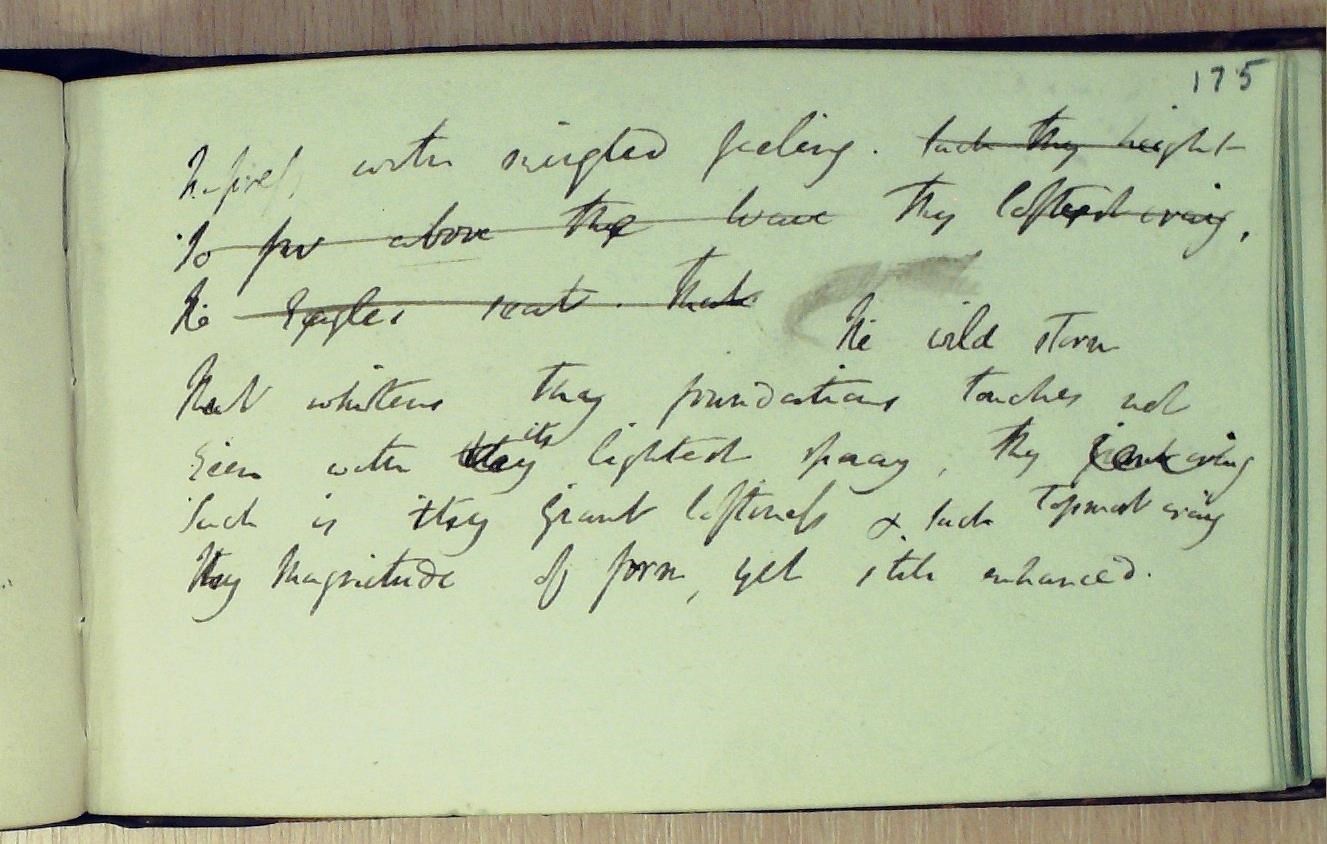 175
Thyself, with mingled feeling. Such thy height
So far above the wave thy loftiest craig,
The Eagles seat. That
The wild storm
That whitens thy foundations touches not
Even with its lightest spray, thy craig
Such is thy Giant loftiness & such topmost craig
Thy Magnitude of form, yet still enhanced.